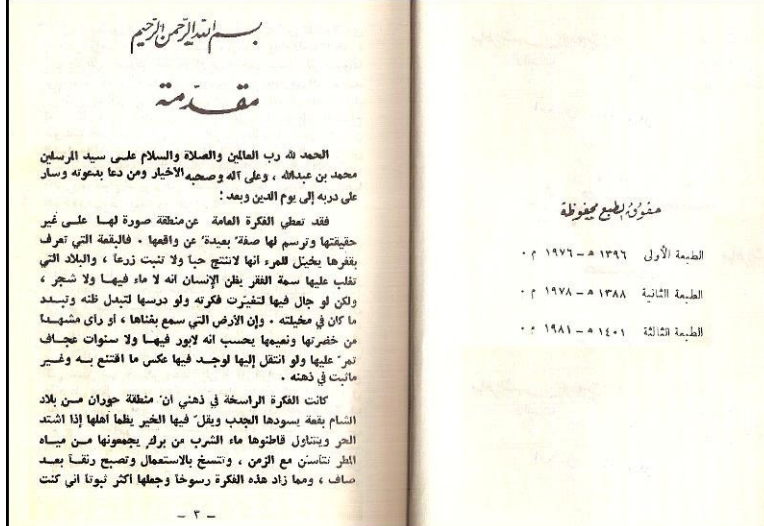 حقوق الطبع محفوظة
الطبعة الأولى ١٣٩٦ هـ – ١٩٧٦ م ٠
الطبعة الثانية ١٣٨٨ هـ – ١٩٧٨ م ٠
الطبعة الثالثة ١٤٠١ هـ – ١٩٨١ م ٠
بسم الله الرحمن الرحيم
مقدمة
الحمد لله رب العالمين والصلاة والسلام على سيد المرسلين
محمد بن عبدالله ، وعلى آله وصحبه الأخيار ومن دعا بدعوته وسار
على دربه إلى يوم الدين وبعد :
فقد تعطي الفكرة العامة عن منطقة صورة لها على غير
حقيقتها وترسم لها صفة بعيدة عن واقعها ٠ فالبقعة التي تعرف
بفقرها يخيّل للمرء انها لاتنتج حباً ولا تنبت زرعاً ، والبلاد التي
تغلب عليها سمة الفقر يظن الإنسان انه لا ماء فيها ولا شجر ،
ولكن لو جال فيها لتغيّرت فكرته ولو درسها لتبدل ظنه وتبدد
ما كان في مخيلته ٠ وإن الأرض التي سمع بغناها ، أو رأى مشهداً
من خضرتها ونعيمها يحسب انه لابور فيها ولا سنوات عجاف
تمرّ عليها ولو انتقل إليها لوجد فيها عكس ما اقتنع به وغير
ماثبت في ذهنه ٠
كانت الفكرة الراسخة في ذهني انّ منطقة حوران من بلاد
الشام بقعة يسودها الجدب ويقلّ فيها الخير يظمأ أهلها إذا اشتد
الحر ويتناول قاطنوها ماء الشرب من برك يجمعونها من مياه
المطر تتأسن مع الزمن ، وتتسخ بالاستعمال وتصبح رنقاً بعد
صاف ، ومما زاد هذه الفكرة رسوخاً وجعلها اكثر ثبوتاً اني كنت
– ٣ –